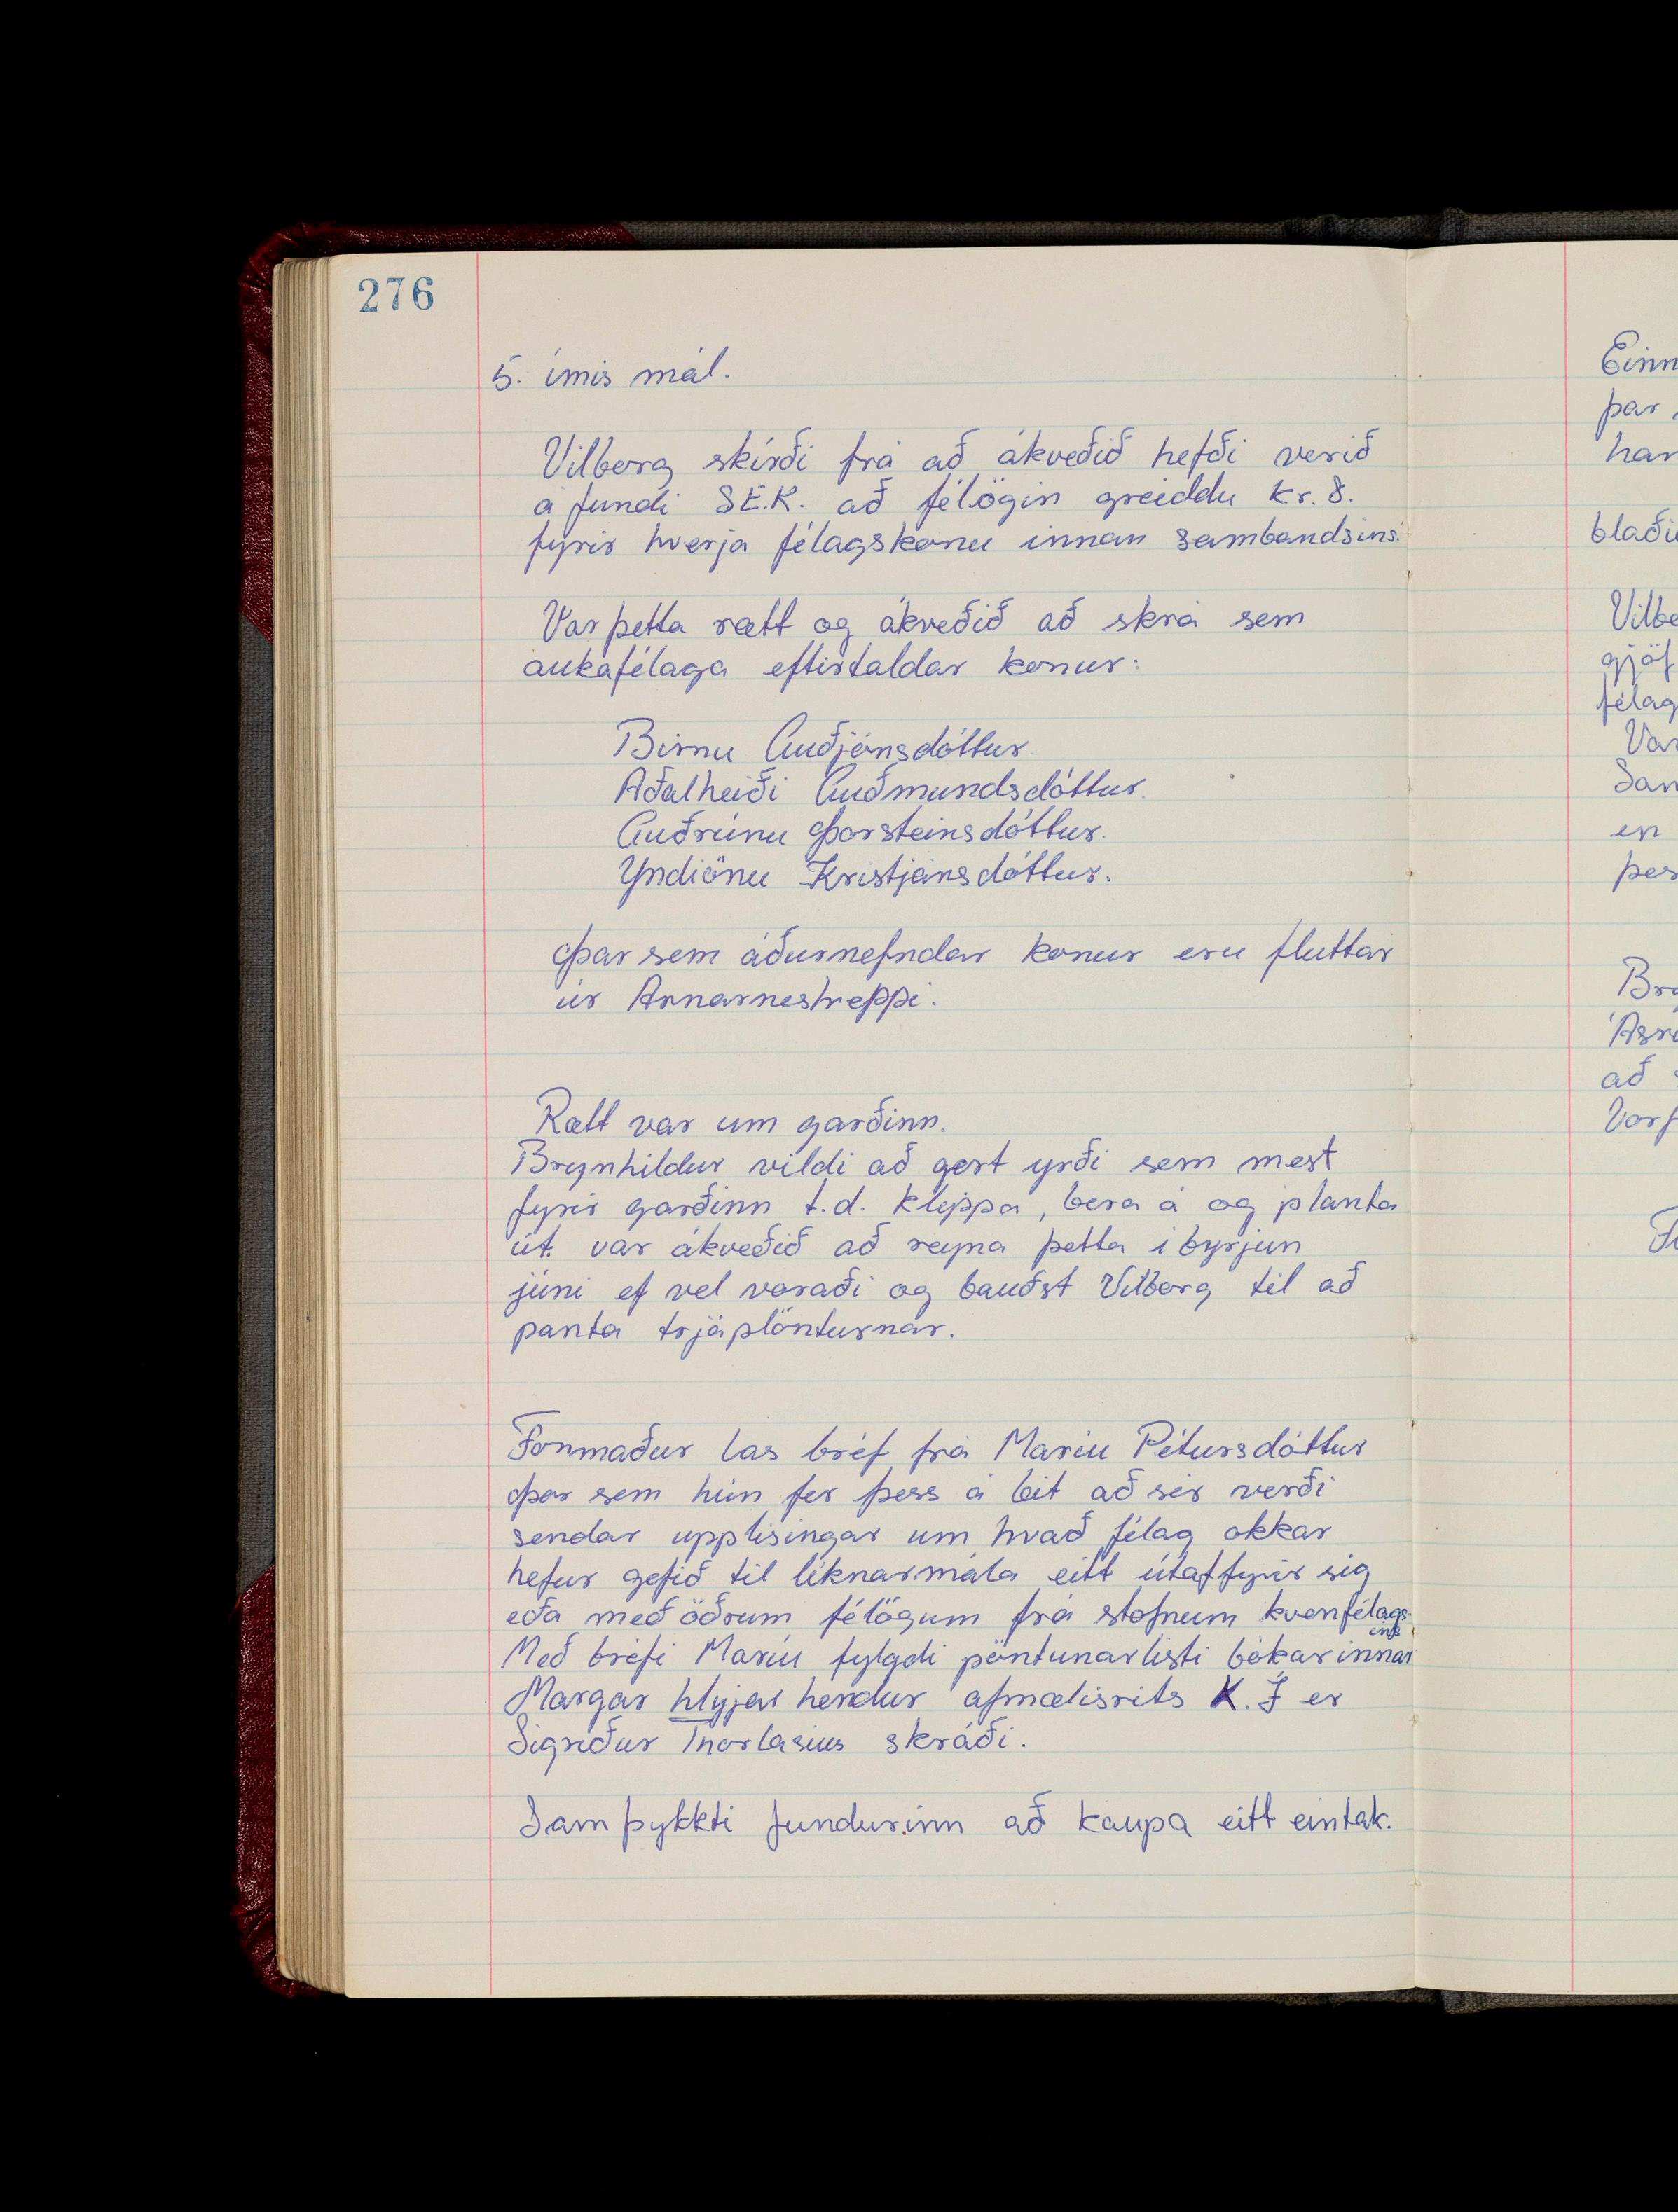 276
5. ímis mál.
Vilborg skírði frá að ákveðið hefði verið
á fundi S.E.K. að félögin greiddu kr. 8.
fyrir hverja félagskonu innan sambandsins.
Var þetta rætt og ákveðið að skrá sem
aukafélaga eftirtaldar konur:
Birnu Guðjónsdóttur.
Aðalheiði Guðmundsdóttur.
Guðrúnu Þorsteinsdóttur.
Yndiönu Kristjánsdóttur.
Þar sem áðurnefndar konur eru fluttar
úr Arnarneshreppi.
Rætt var um garðinn.
Brynhildur vildi að gert yrði sem mest
fyrir garðinn t.d. klippa, bera á og planta
út. var ákveðið að reyna þetta í byrjun
júní ef vel voraði og bauðst Vilborg til að
panta trjáplönturnar.
Formaður las bréf frá Maríu Pétursdóttur
Þar sem hún fer þess á leit að sér verði
sendar upplísingar um hvað félag okkar
hefur gefið til líknarmála eitt útaffyrir sig
eða með öðrum félögum frá stofnum kvenfélags
ins
Með bréfi Maríu fylgdi pöntunarlisti bókarinnar
Margar hlýjar hendur afmælisrits K.Í er
Sigríður Thorlasíus skráði.
Samþykkti fundurinn að kaupa eitt eintak.
Einn
þar
har
blaði
Vilbe
gjöf
félag
Var
Sam
en
þes
Br
að